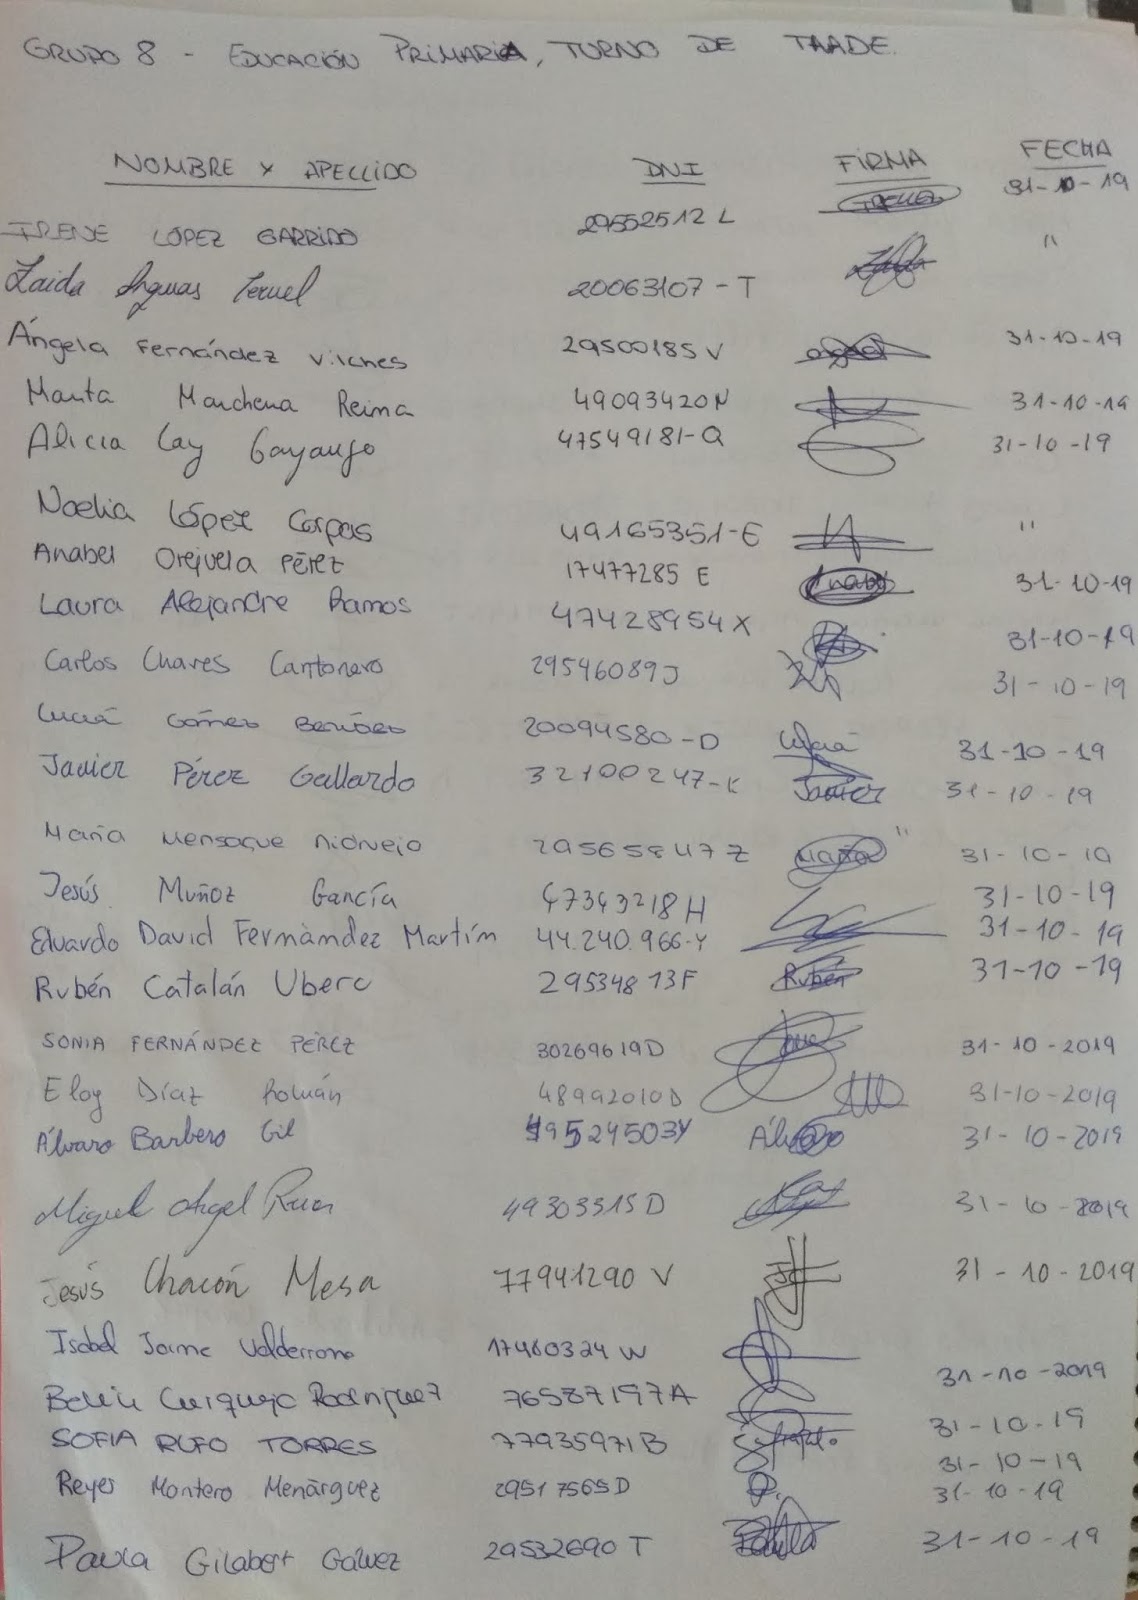 GRUPO 8 - EDUCACIÓN PRIMARIA, TURNO DE TARDE.
NOMBRE Y APELLIDO DNI FIRMA FECHA
IRENE LÓPEZ GARRIDO 29552512 L IRENE 31-10-19
Zaida Anguas Teruel 20063107-T "
Ángela Fernández Vilches 29500185 V 31-10-19
Marta Marchena Reina 49093420N 31-10-19
Alicia Lay Gayango 47549181-Q 31-10-19
Noelia López Corpas 49165351-E "
Anabel Orejuela Pérez 17477285 E Anabel 31-10-19
Laura Alejandre Ramos 47428954X 31-10-19
Carlos Chaves Cantonero 29546089J 31-10-19
Lucía Gómez 20094580-D Lucía 31-10-19
Javier Pérez Gallardo 32100247-K Javier 31-10-19
María Mensaque 29565847Z María " 31-10-19
Jesús Muñoz García 47343218H 31-10-19
Eduardo David Fernández Martín 44.240.966-Y 31-10-19
Rubén Catalán Ubero 29534813F Rubén 31-10-19
SONIA FERNÁNDEZ PÉREZ 30269619D 31-10-2019
Eloy Díaz Roldán 48992010D 31-10-2019
Álvaro Barbero Gil 49524503Y Álvaro 31-10-2019
Miguel Angel 49303315D 31-10-2019
Jesús Chacón Mesa 77941290 V 31-10-2019
Isabel Jaime Valderrama 17480324 W 31-10-2019
Belén Rodríguez 76587197A 31-10-19
SOFIA RUFO TORRES 77935971B 31-10-19
Reyes Montero Menárguez 29517565D 31-10-19
Paula Gilabert Gálvez 29532690 T Paula 31-10-19